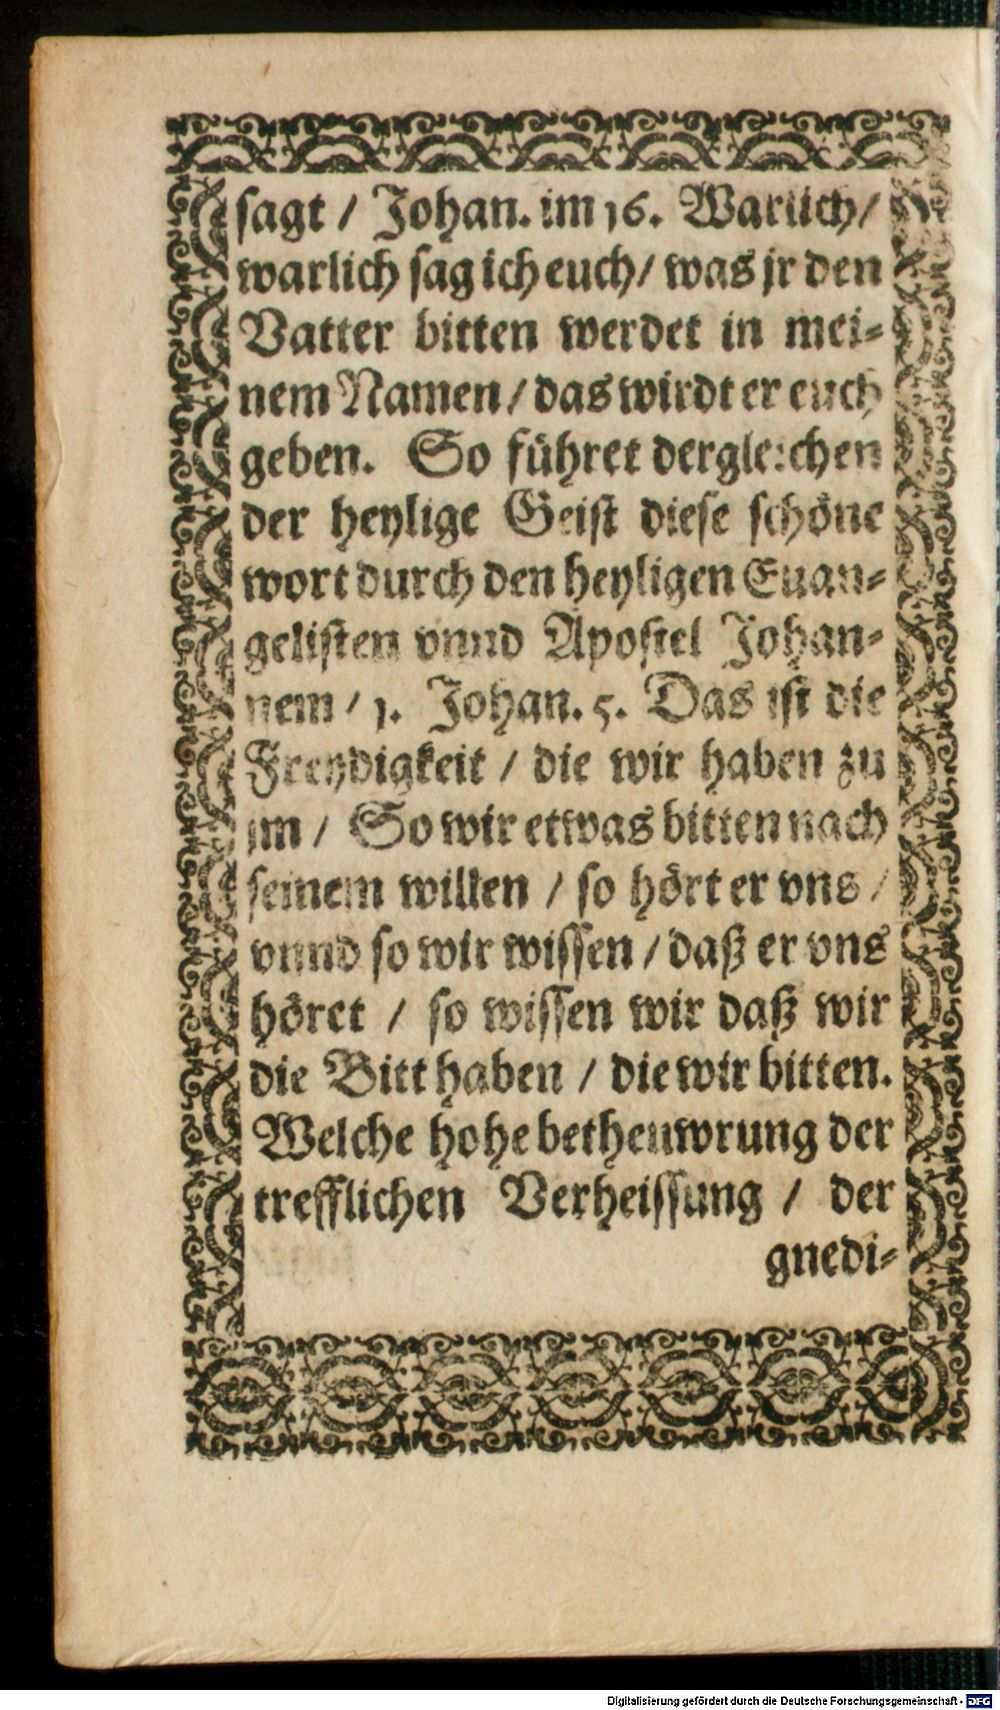 sagt / Johan. im 16. Warlich /
warlich sag ich euch / was jr den
Vatter bitten werdet in mei-
nem Namen / das wirdt er euch
geben. So führet dergleichen
der heylige Geist diese schöne
wort durch den heyligen Euan-
gelisten vnnd Apostel Johan-
nem / 1. Johan. 5. Das ist die
Freydigkeit / die wir haben zu
jm / So wir etwas bitten nach
seinem willen / so hört er vns /
vnnd so wir wissen / daß er vns
höret / so wissen wir daß wir
die Bitt haben / die wir bitten.
Welche hohe betheuwrung der
trefflichen Verheissung / der
gnedi-
Digitalisierung gefördert durch die Deutsche Forschungsgemeinschaft - DFG